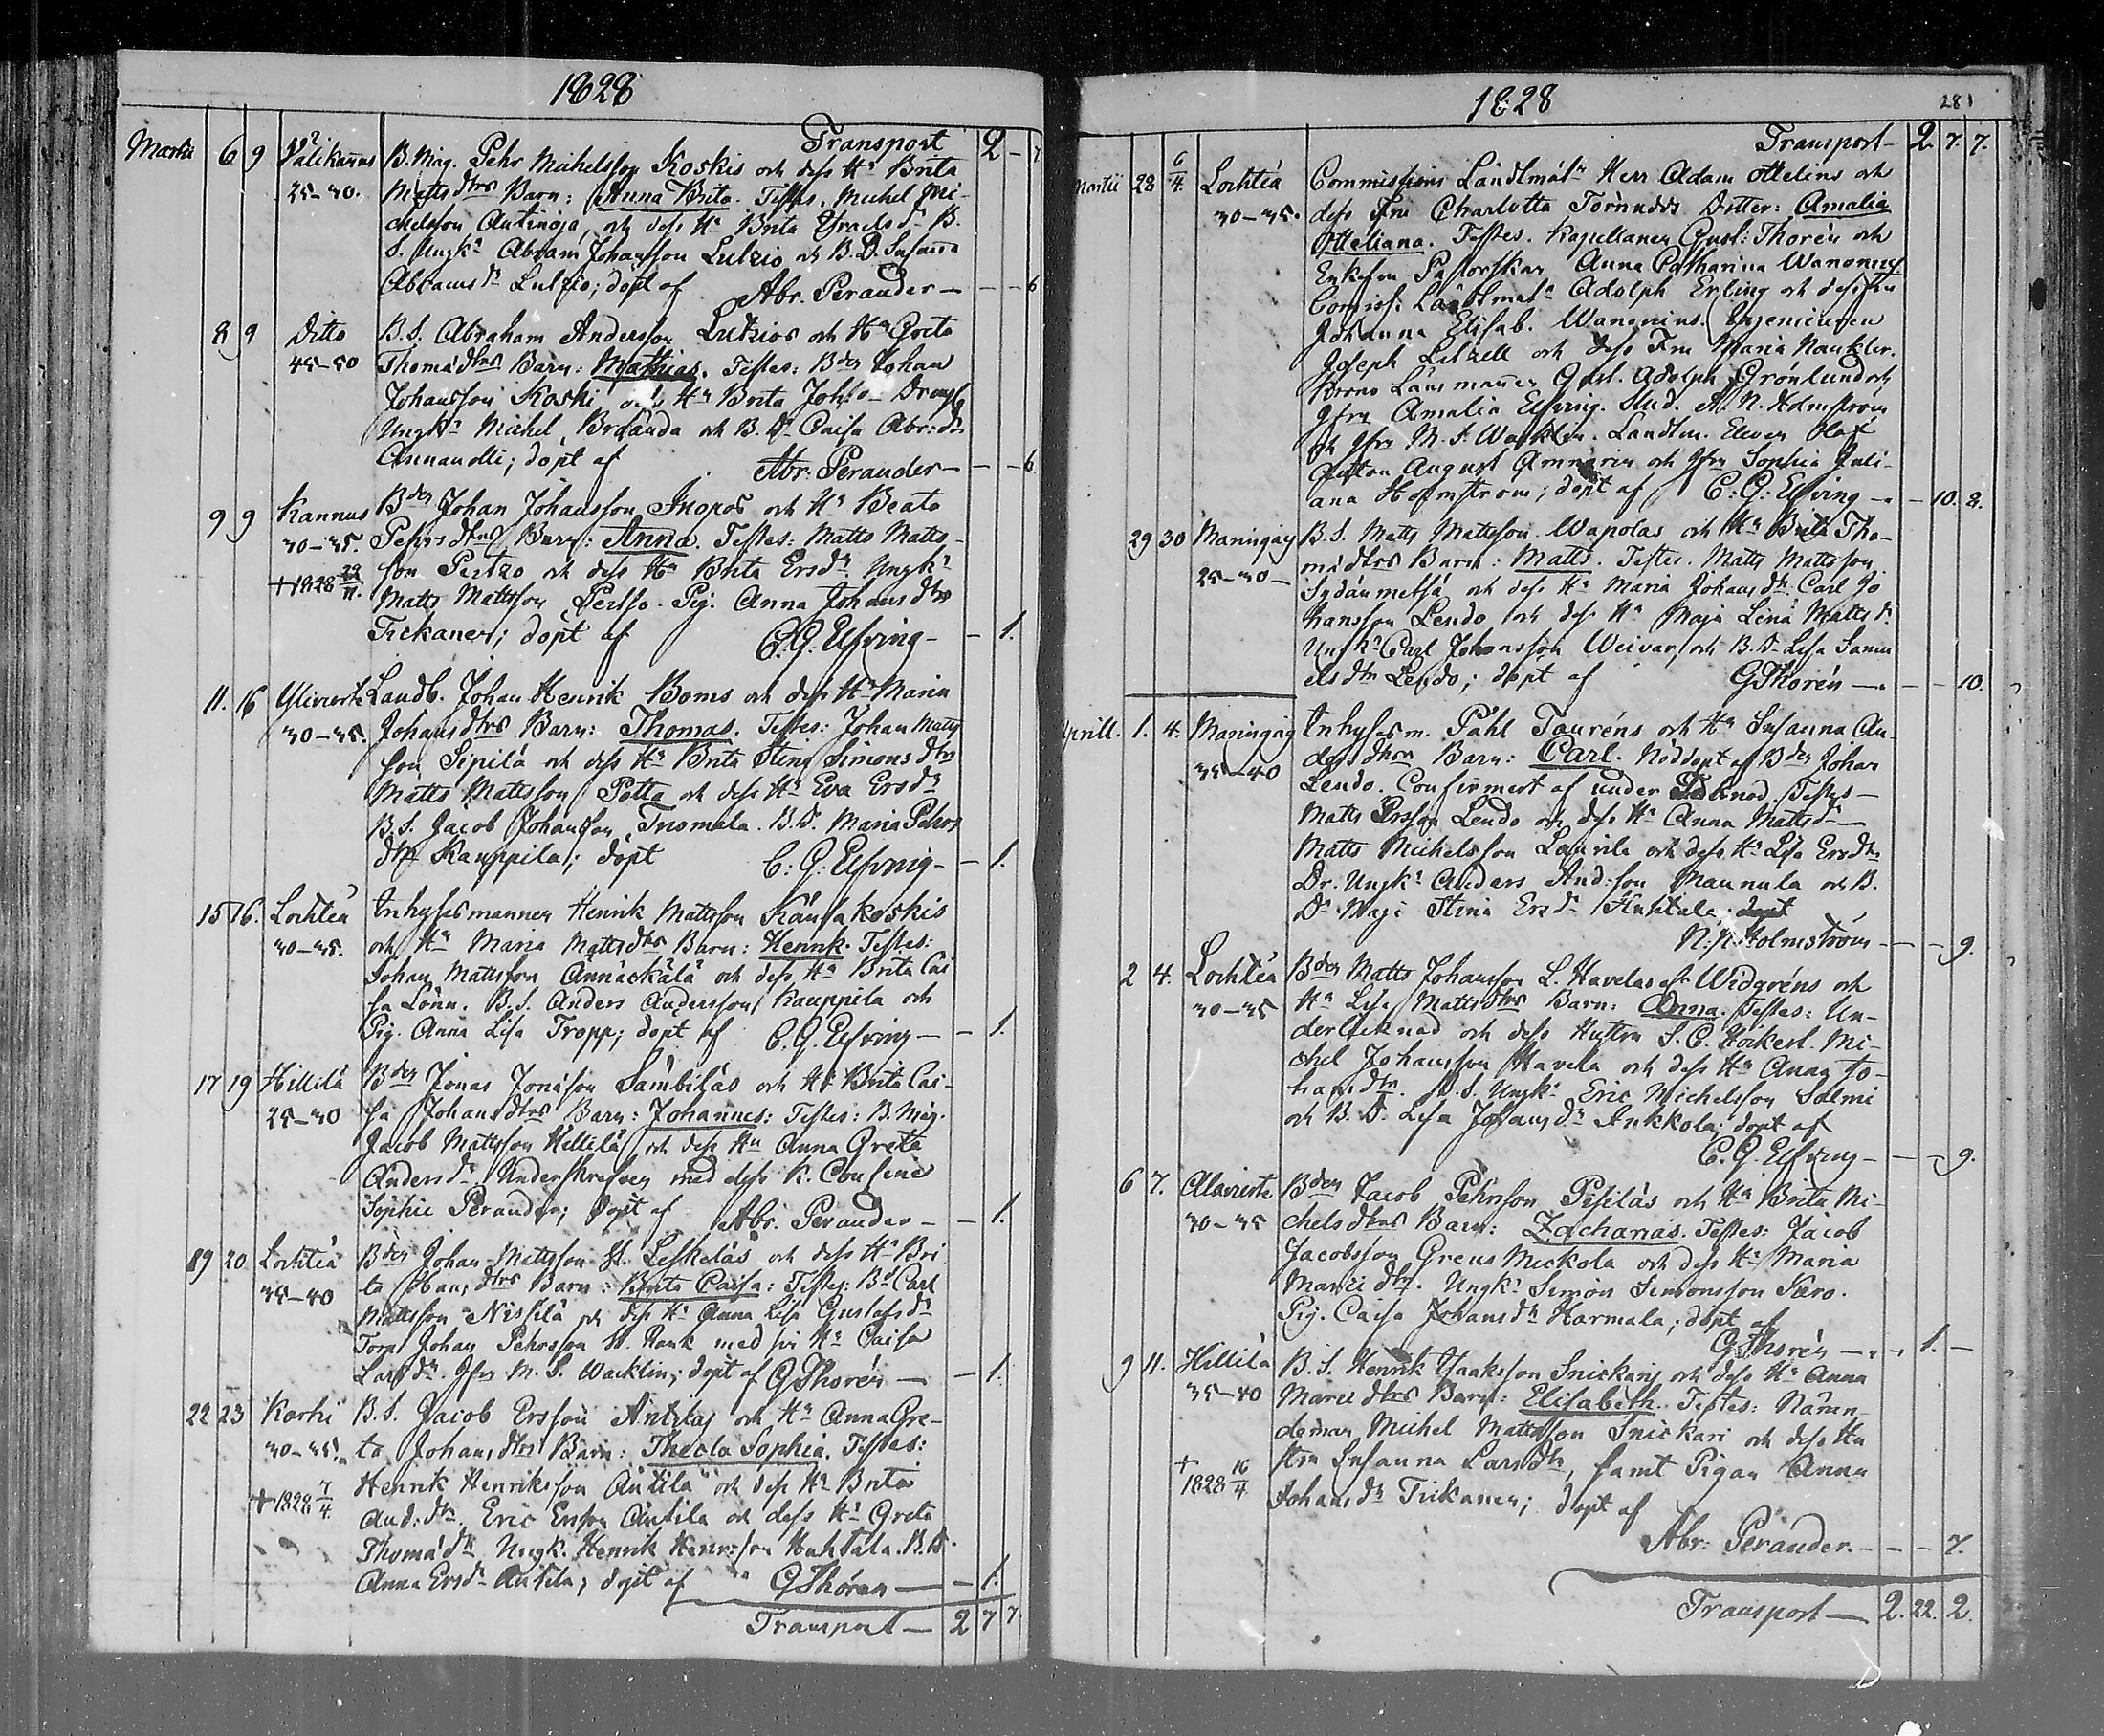 1828
Transport 2 - 7
Martii 6 9 Välikannus B. Måg. Pehr Michelsson Koskis och dess Hu Brita
25-30. Matts dtrs Barn: Anna Brita. Testes. Michel Mi-
chelsson Antinoja och dess Hu Brita Isacks dr B.
S. Ungk. Abram Johansson Lutzio och B. D. Susanna
Abrams dr Lutzio; döpt af Abr. Perander - - - 6
8 9 Ditto B. S. Abraham Andersson Lutzios och Hu Greta
45-50 Thomæ dtrs Barn: Mathias. Testes: Bden Johan
Johansson Koski och Hu Brita Johs
Ungk. Michel och B. D. Caisa Abr: dr
döpt af Abr: Perander - - - 6.
9 9 Kannus Bden Johan Johansson Inopos och Hu Beata
30-35. Pehrs dtrs Barn: Anna. Testes: Matts Matts-
+ 1828 22/11. son Pertzo och dess Hu Brita Ersdr. Ungk.
Matts Mattsson Pertzo. Pig. Anna Johans dtr
Tickanen; döpt af C. G. Elfving - - 1.
11. 16 Ylivieska Landb. Johan Henrik Boms och dess Hu Maria
30-35. Johans dtrs Barn: Thomas. Testes: Johan Matts
son Sipilä och dess Hu Brita Stina Simons dtr
Matts Mattsson Potta och dess Hu Eva Ersdr
B. S. Jacob Johansson Tuomala. B. D. Maria Pehrs
dtr Kauppila; döpt C: G: Elfving - - 1.
15 16. Lochteå Inhysesmannen Henrik Mattsson Känsäkoskis
30-35. och Hu Maria Matts dtrs Barn: Henrik. Testes:
Johan Mattsson och dess Hu Brita Cai
sa Lönn. B. S. Anders Andersson Kauppila och
Pig. Anna Lisa Tropp; döpt af C. G. Elfving - - 1.
17 19 Hillilä Bden Jonas Jonasson Sämbiläs och Hu Brita Cai-
25-30 sa Johans dtrs Barn: Johannes: Testes: B. Måg.
Jacob Mattsson Hillilä och dess Hu Anna Greta
Anders dr. Underskrefven med dess K. Cousine
Sophie Perander; döpt af Abr. Perander - - 1.
19 20 Lochteå Bden Johan Mattsson St. Leskeläs och dess Hu Bri
35-40 ta Hans dtrs Barn: Brita Caisa: Testes: Bd Carl
Mattsson Nissilä och dess Hu Anna Lisa Gustafs dr
Torp. Johan Pehrsson St. Rank med sin Hu Caisa
Lars dr. Jfru M. S. Wacklin; döpt af G Thorén - - 1.
22 23 Karhi B. S. Jacob Ersson Antilas och Hu Anna Gre-
30-35. ta Johans dtrs Barn: Thecla Sophia. Testes:
+ 1828 7/4 Henrik Henriksson Antila och dess Hu Brita
And: dtr. Eric Ersson Antila och dess Hu Greta
Thomæ dtr Ungk. Henrik Henrsson Huhtala. B. D.
Anna Ersdr Antila; döpt af G Thorén - - 1.
Transport - 2 7 7
1828
281
Transport - 2. 7. 7.
Martii 28 6/4 Lochteå Commissions Landtmätn Herr Adam Ottelins och
30-35. dess Fru Charlotta Törnudds Dotter: Amalia
Otteliana. Testes. Kapellanen Gust: Thorén och
Enkefru Pastorskan Anna Catharina Wanonius
Comiss. Landtmätn Adolph Erling och dess Fru
Johanna Elisab. Wanonius. Ingenieuren
Joseph Lilzell och dess Fru Maria Naukler.
Krono Länsmannen Gust. Adolph Grönlund och
Jfru Amalia Elfving. Stud. N. N. Holmström
och Jfru M. S. Wacklin. Landtm. Eleven Olof
Anton August och Jfru Sophia Juli-
ana Holmström; döpt af C. G: Elfving - - 10. 8.
29 30 Maringais B. S. Matts Mattsson Wapolas och Hu Brita Tho-
25-30 - mæ dtrs Barn: Matts. Testes. Matts Mattsson
Sydänmetsä och dess Hu Maria Johans dtr. Carl Jo
hansson Lendo och dess Hu Maja Lena Matts dr.
Ungk. Carl Johansson Weivar, och B. D. Lisa Samu
els dtr Lendo; döpt af G Thorén - - - 10.
Aprill. 1. 4. Maringais Inhysesm. Påhl Tauréns och Hu Susanna An-
35-40 ders dtrs Barn: Carl. Nöddöpt af Bden Johan
Lendo. Confirmert af under Tecknad. Testes -
Matts Ersson Lendo och dess Hu Anna Matts dr -
Matts Michelsson Laurila och dess Hu Lisa Ersdtr
Dr. Ungk. Anders And:son Maunula och B.
D. Maja Stina Ersdr Huhtala. döpt
N. N. Holmström - - - 9.
2 4. Lochteå Bden Matts Johansson L. Havelas el. Widgréns och
30-35 Hu Lisa Matts dtrs Barn: Anna. Testes: Un-
dertecknad och dess Hustru S. C. Höckert. Mi-
chel Johansson Havela och dess Hu Anna Jo-
hans dtr. B. S. Ungk. Eric Michelsson Salmi
och B. D. Lisa Johans dr Ankkola; döpt af
C. G. Elfving - - - 9.
6 7. Alavieska Bden Jacob Pehrsson Pisiläs och Hu Brita Mi-
30-35 chels dtrs Barn: Zacharias. Testes: Jacob
Jacobsson Greus Mickola och dess Hu Maria
Marci dtr. Ungk. Simon Simonsson Karo.
Pig. Caisa Johans dr Harmala; döpt af
G Thorén - - - 1. -
9 11. Hillilä B. S. Henrik Isaksson Snickaris och dess Hu Anna
35-40 Marci dtrs Barn: Elisabeth. Testes: Nämn-
deman Michel Mattsson Snickari och dess Hu
+ 1828 16/4 stru Susanna Lars dtr, samt Pigan Anna
Johans dr Tickanen; döpt af
Abr: Perander. - - - 7.
Transport - 2. 22. 2.